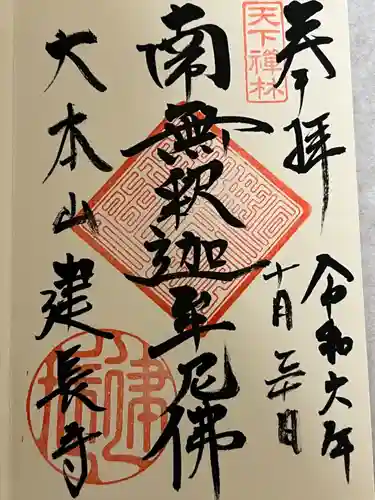 奉拝
天下禅林
令和六年
十月三十日
南無釈迦牟尼佛
大本山建長寺